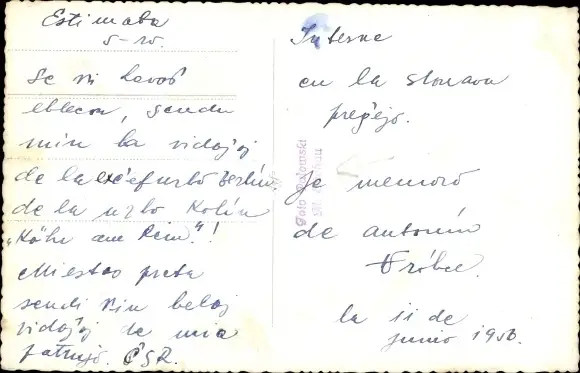 Estimata
S-ro.
Se vi havos
eblecon, sendu
min la vidaĵoj
de la exĉefurbo Berlín
de la urbo Kolín
„Köln am Rein."!
Mi estas preta
sendi vin belaj
vidaĵoj de mia
patrujo. ČSR.
Interne
en la slovava
preĝejo.
Je memoro
de Antonín
la 11 de
junio 1956.
Foto